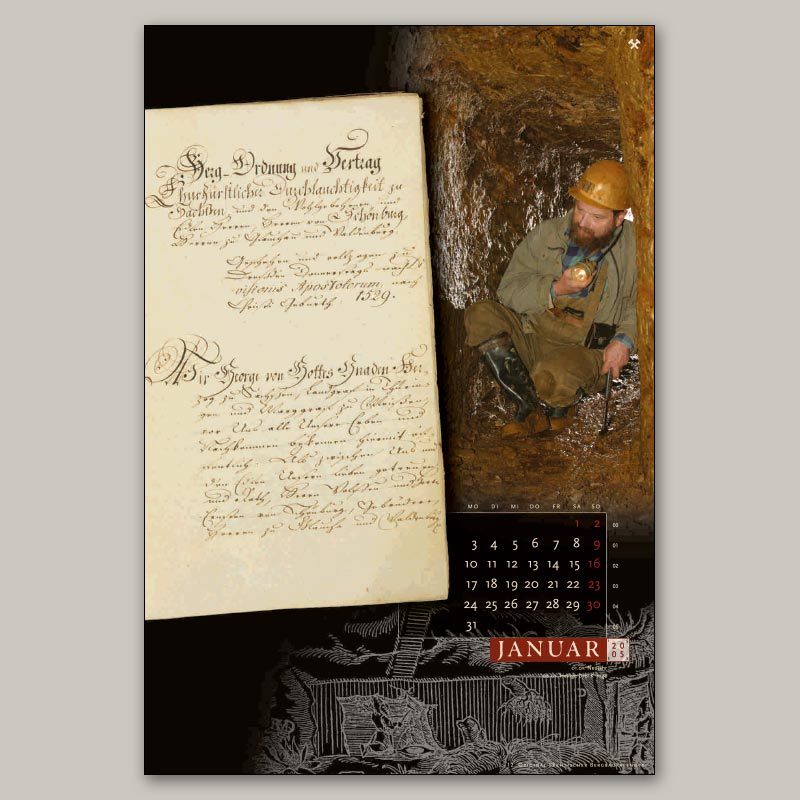 Berg-Ordnung und Vertrag
Churfürstlicher Durchlauchtigkeit zu
Sachsen und den Wohlgebohrnen und
Edlen Herren, Herren von Schönburg
Herren zu Glauchau und Waldenburg.
Geschehen und vollzogen zu
Dresden Donnerstags nach
visionis Apostolorum, nach
Christi Geburth 1529.
Wir George von Gottes Gnaden Her-
zog zu Sachsen, Landgraf in Thürin-
gen und Marggraf zu Meißen
vor Uns alle Unsere Erben und
Nachkommen bekennen hiermit
Als zwischen Uns
den Edlen Unsern lieben getreuen
und Rath, Herrn
Ernsten von Schönburg, Gebrüdere
Herren zu Glaucha und Waldenburg
MO DI MI DO FR SA SO
1 2 00
3 4 5 6 7 8 9 01
10 11 12 13 14 15 16 02
17 18 19 20 21 22 23 03
24 25 26 27 28 29 30 04
31 05
JANUAR 2005
01.01. Neujahr
17. ORIGINAL SÄCHSISCHER BERGBAUKALENDER